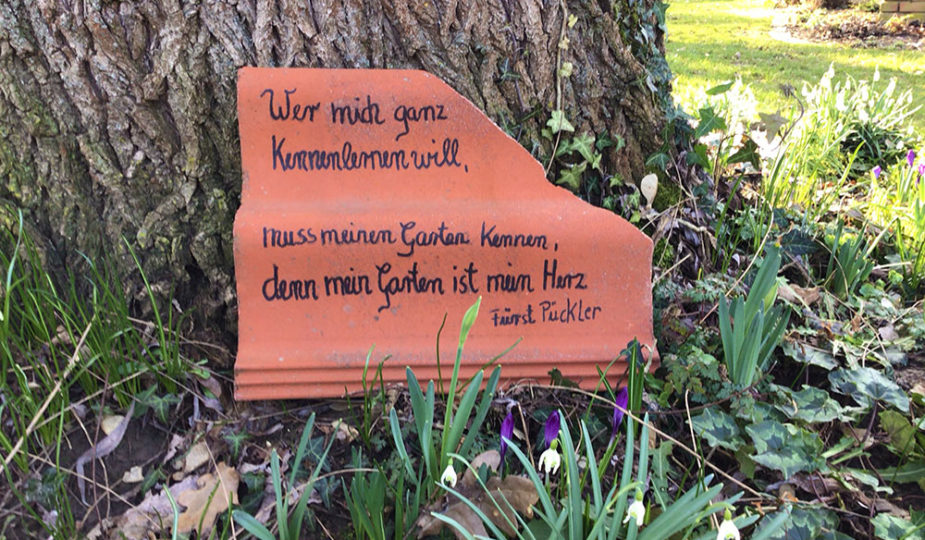 Wer mich ganz
Kennenlernen will,
muss meinen Garten Kennen,
denn mein Garten ist mein Herz
Fürst Pückler